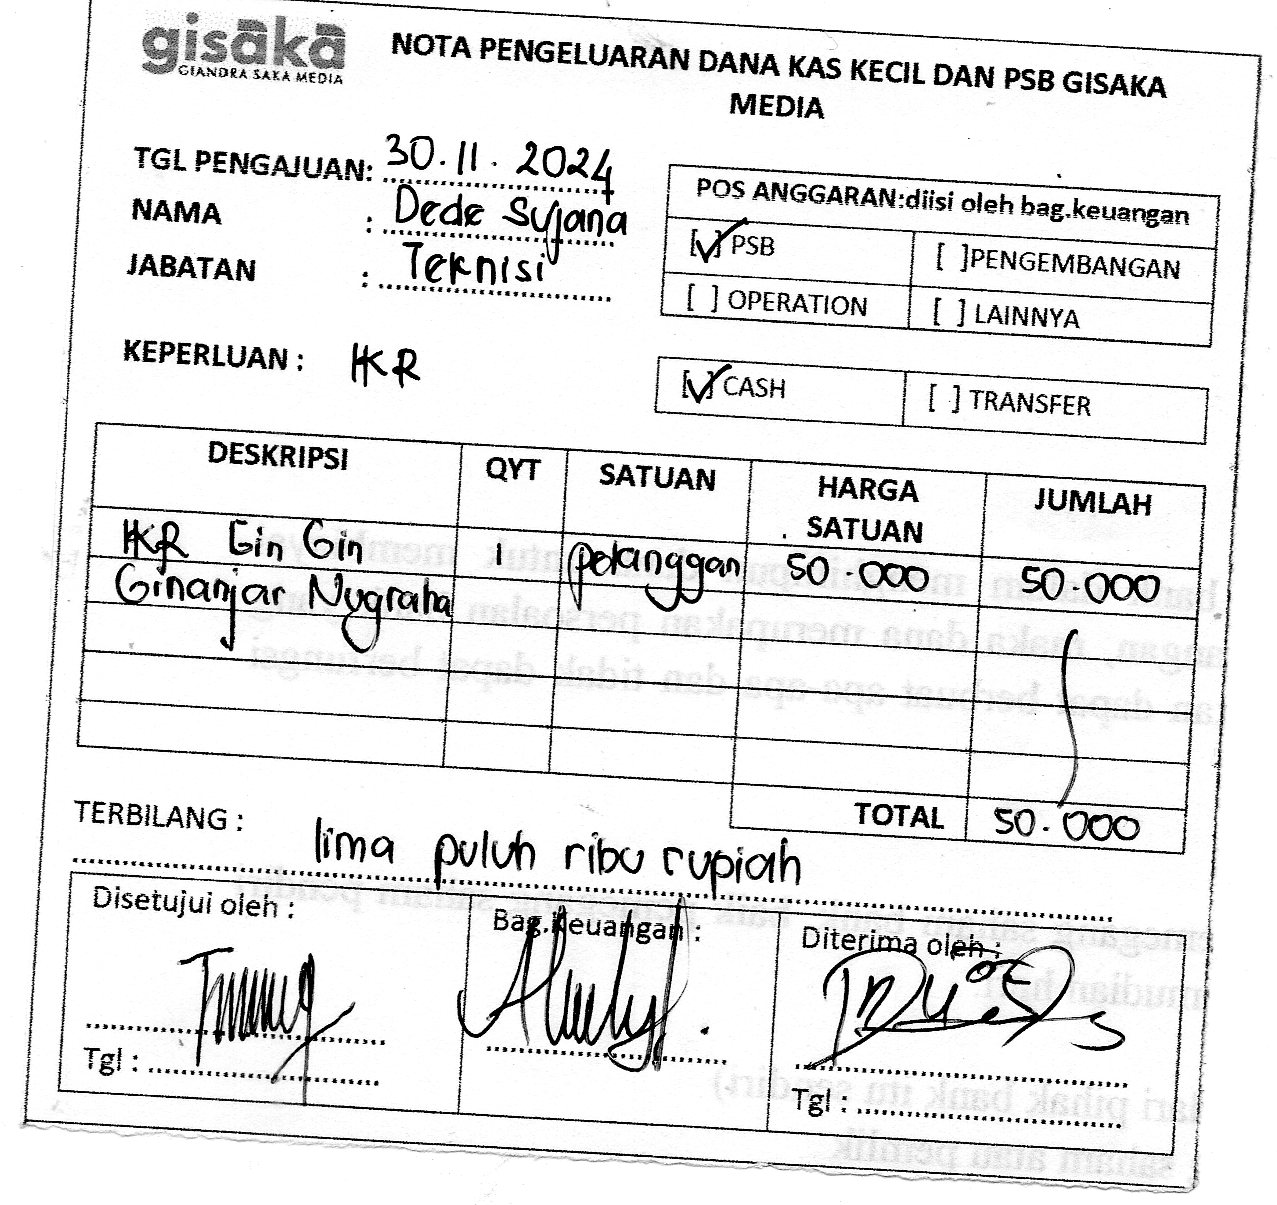 gisaka
GIANDRA SAKA MEDIA
NOTA PENGELUARAN DANA KAS KECIL DAN PSB GISAKA
MEDIA
TGL PENGAJUAN: 30.11.2024
NAMA : Dede Sujana
JABATAN : Teknisi
POS ANGGARAN:diisi oleh bag.keuangan
[✓] PSB [ ]PENGEMBANGAN
[ ] OPERATION [ ] LAINNYA
KEPERLUAN : IKR
[✓] CASH [ ] TRANSFER
DESKRIPSI QYT SATUAN HARGA SATUAN JUMLAH
IKR Gin Gin 1 pelanggan 50.000 50.000
Ginanjar Nugraha
TOTAL 50.000
TERBILANG : lima puluh ribu rupiah
Disetujui oleh : Bag.Keuangan : Diterima oleh :
Tgl : Tgl :